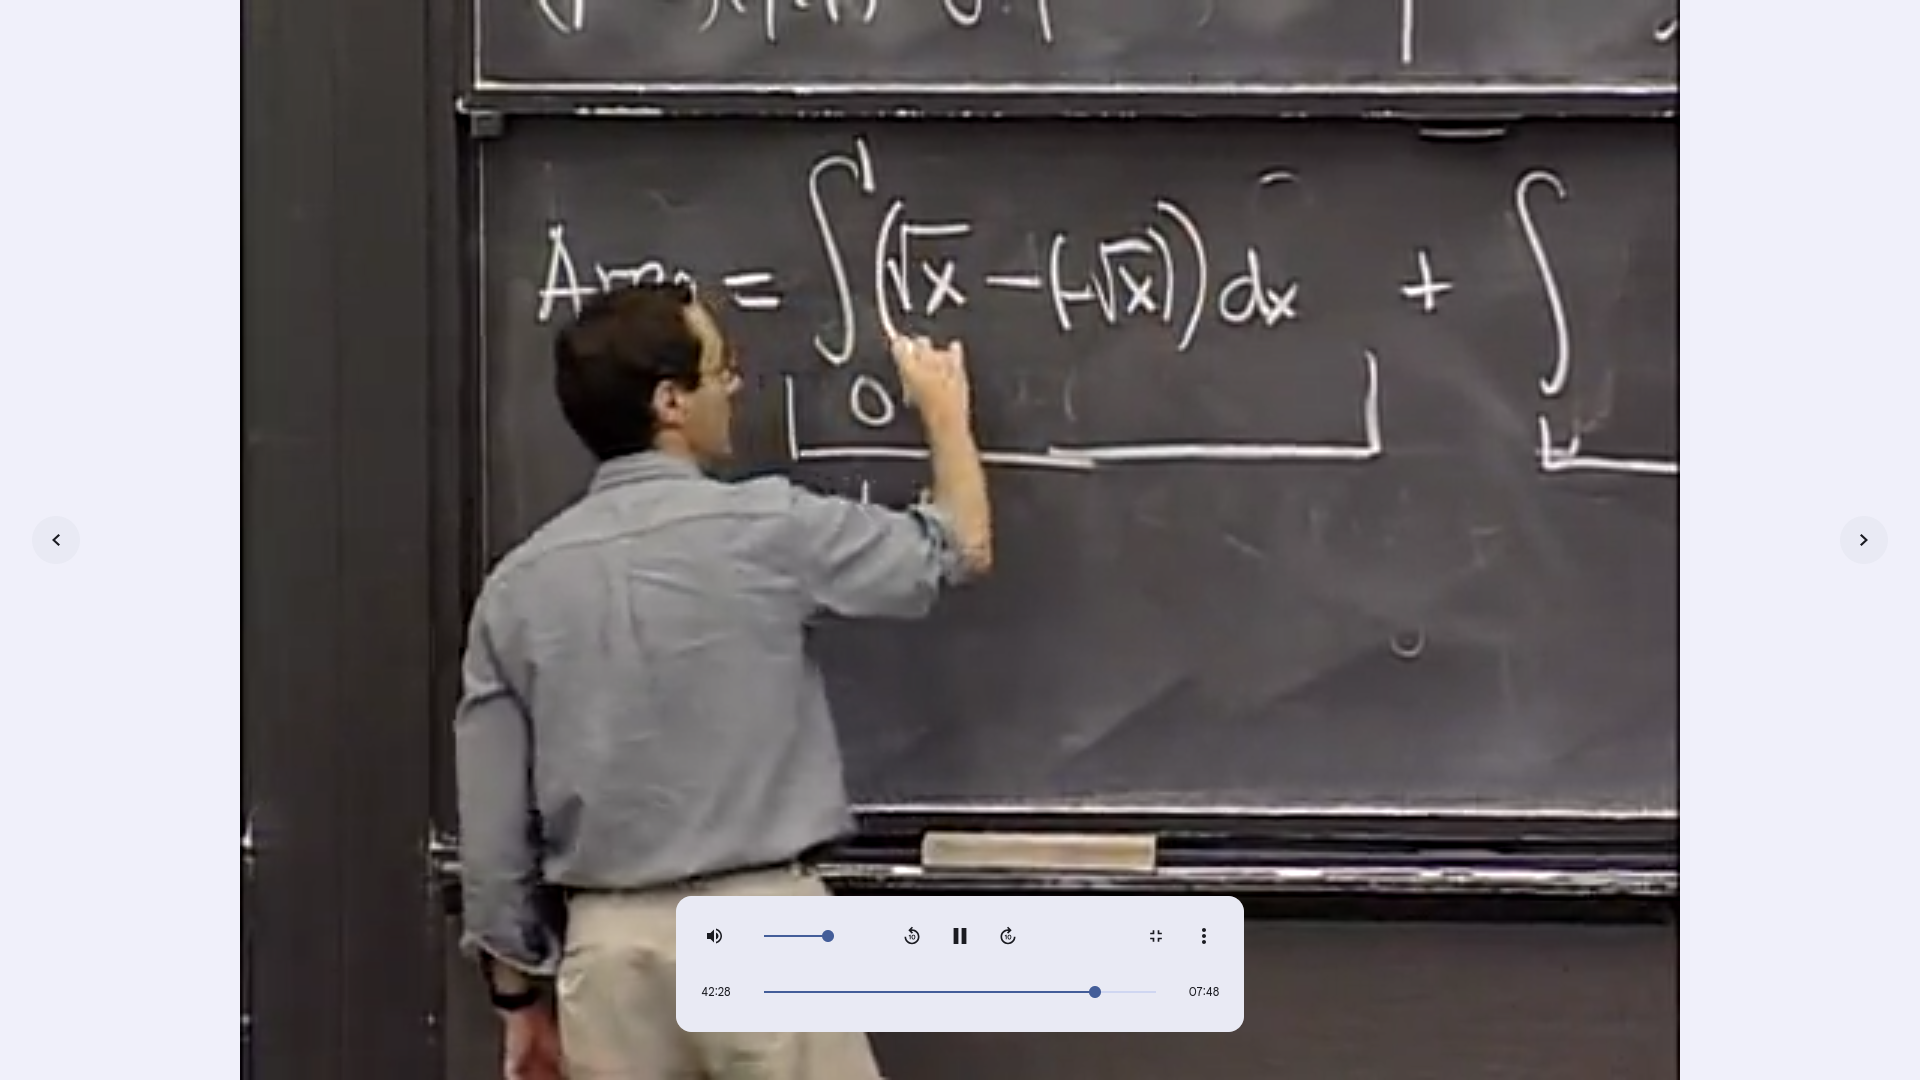 Area = ∫ 1 (√x − (−√x)) dx + ∫
0
42:28 07:48